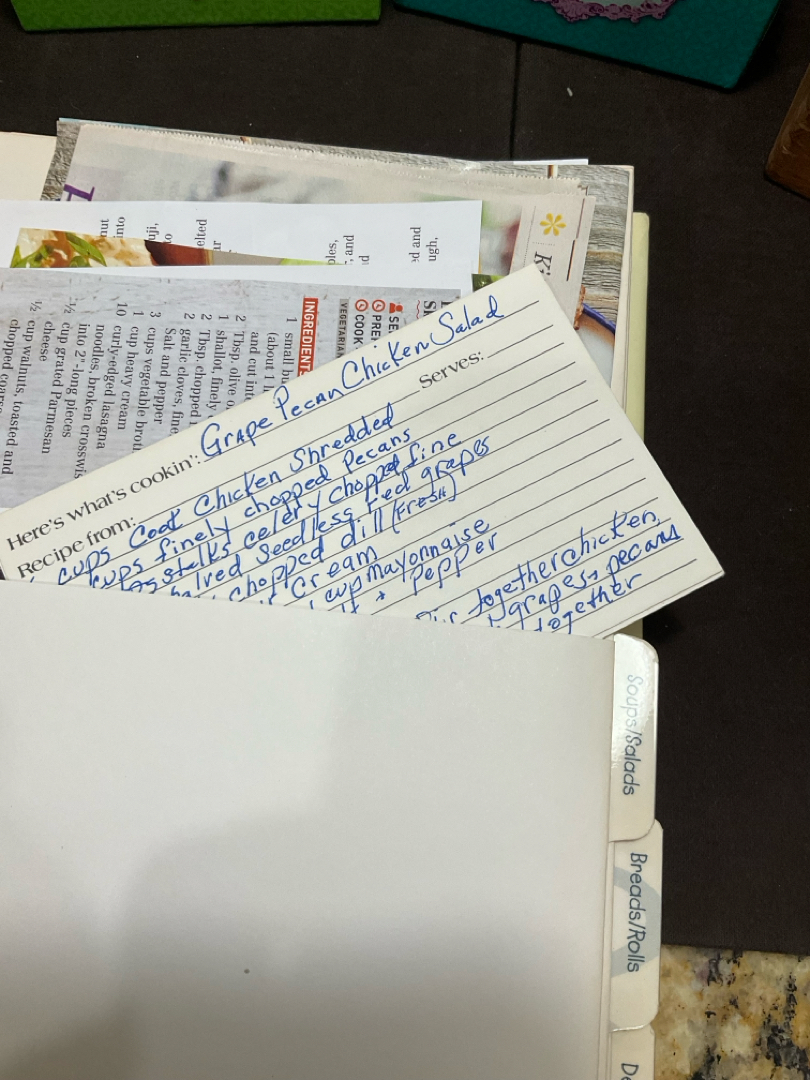 Here's what's cookin': Grape Pecan Chicken Salad
Serves:
Recipe from:
cups Cook Chicken Shredded
cups finely chopped pecans
stalks celery chopped fine
Seedless Red grapes
chopped dill (FRESH)
Cream
cup mayonnaise
Pepper
together chicken,
grapes + pecans
together
INGREDIENTS
VEGETARIA
COOK
PRE
SE
1 small bu
(about 1 l
and cut into
2 Tbsp. olive o
1 shallot, finely
2 Tbsp. chopped
2 garlic cloves, fine
Salt and pepper
3 cups vegetable brot
1 cup heavy cream
10 curly-edged lasagna
noodles, broken crosswis
into 2"-long pieces
½ cup grated Parmesan
cheese
½ cup walnuts, toasted and
chopped coarse
Soups/Salads
Breads/Rolls
De